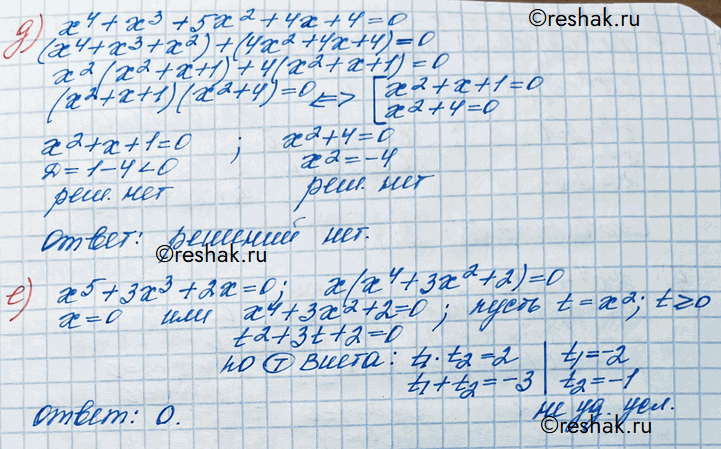 ©reshak.ru
д) x⁴+x³+5x²+4x+4=0
(x⁴+x³+x²)+(4x²+4x+4)=0
x²(x²+x+1)+4(x²+x+1)=0
(x²+x+1)(x²+4)=0 <=> [x²+x+1=0
x²+4=0
x²+x+1=0 ; x²+4=0
D=1-4<0 x²=-4
реш. нет реш. нет
Ответ: решений нет.
©reshak.ru
е) x⁵+3x³+2x=0; x(x⁴+3x²+2)=0
x=0 или x⁴+3x²+2=0; пусть t=x²; t≥0
t²+3t+2=0
по Т Виета: t₁·t₂=2 | t₁=-2
t₁+t₂=-3 | t₂=-1
не уд. усл.
Ответ: 0.
©reshak.ru